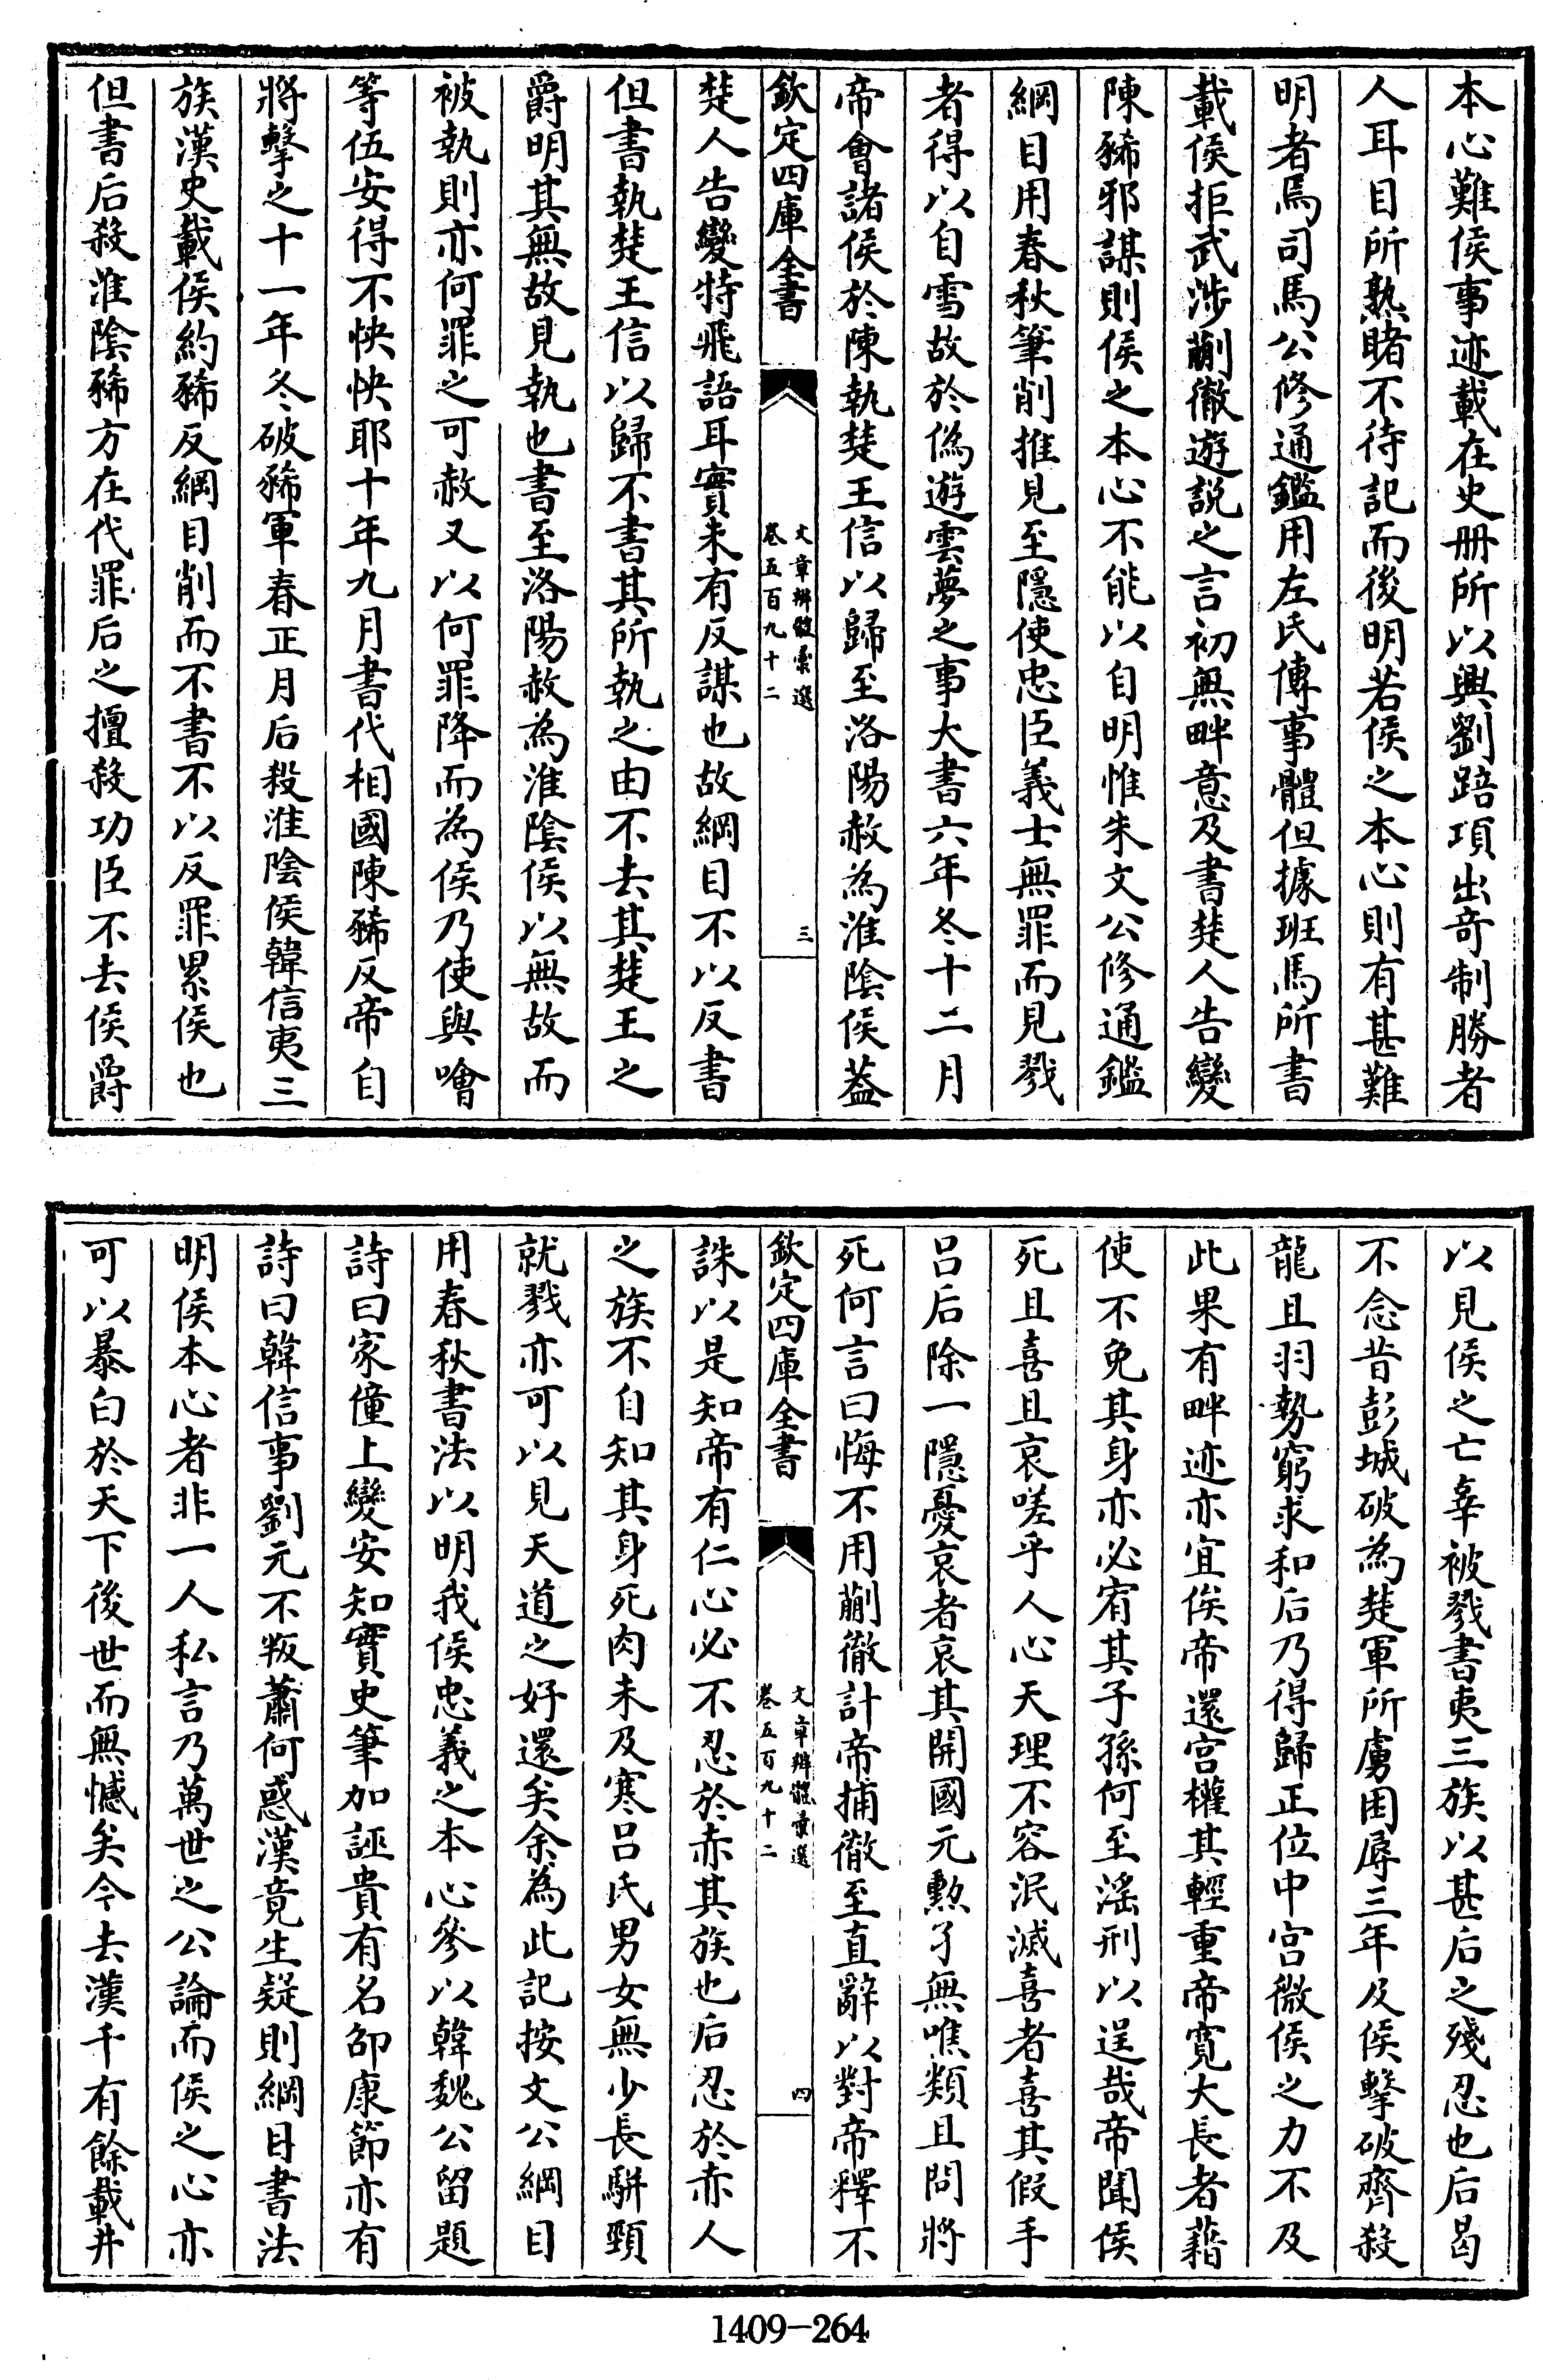 本心難侯事迹載在史册所以興劉踣項出奇制勝者
人耳目所熟睹不待記而後明若侯之本心則有甚難
明者焉司馬公修通鑑用左氏傳事體但據班馬所書
載侯拒武涉蒯徹遊説之言初無畔意及書楚人告變
陳豨邪謀則侯之本心不能以自明惟朱文公修通鑑
綱目用春秋筆削推見至隱使忠臣義士無罪而見戮
者得以自雪故於偽遊雲夢之事大書六年冬十二月
帝會諸侯於陳執楚王信以歸至洛陽赦為淮陰侯蓋
欽定四庫全書
文章辨體彙選
卷五百九十二
三
楚人告變特飛語耳實未有反謀也故綱目不以反書
但書執楚王信以歸不書其所執之由不去其楚王之
爵明其無故見執也書至洛陽赦為淮陰侯以無故而
被執則亦何罪之可赦又以何罪降而為侯乃使與噲
等伍安得不怏怏耶十年九月書代相國陳豨反帝自
將擊之十一年冬破豨軍春正月后殺淮陰侯韓信夷三
族漢史載侯約豨反綱目削而不書不以反罪累侯也
但書后殺淮陰豨方在代罪后之擅殺功臣不去侯爵
以見侯之亡辜被戮書夷三族以甚后之殘忍也后曷
不念昔彭城破為楚軍所虜困辱三年及侯擊破齊殺
龍且羽勢窮求和后乃得歸正位中宮微侯之力不及
此果有畔迹亦宜俟帝還宫權其輕重帝寛大長者藉
使不免其身亦必宥其子孫何至滛刑以逞哉帝聞侯
死且喜且哀嗟乎人心天理不容泯滅喜者喜其假手
吕后除一隱憂哀者哀其開國元勲孑無噍類且問將
死何言曰悔不用蒯徹計帝捕徹至直辭以對帝釋不
欽定四庫全書
文章辨體彙選
卷五百九十二
四
誅以是知帝有仁心必不忍於赤其族也后忍於赤人
之族不自知其身死肉未及寒吕氏男女無少長駢頸
就戮亦可以見天道之好還矣余為此記按文公綱目
用春秋書法以明我侯忠義之本心參以韓魏公留題
詩曰家僮上變安知實史筆加誣貴有名邵康節亦有
詩曰韓信事劉元不叛蕭何惑漢竟生疑則綱目書法
明侯本心者非一人私言乃萬世之公論而侯之心亦
可以暴白於天下後世而無憾矣今去漢千有餘載井
1409-264